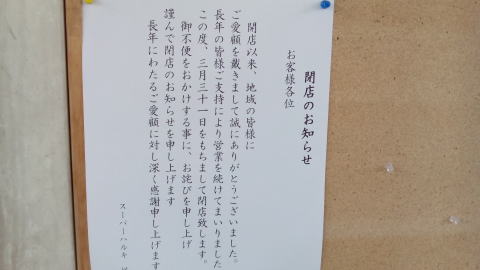 閉店のお知らせ
お客様各位
開店以来、地域の皆様に
ご愛顧を戴きまして誠にありがとうございました。
長年の皆様ご支持により営業を続けてまいりました
この度、三月三十一日をもちまして閉店致します。
御不便をおかけする事に、お詫びを申し上げ
謹んで閉店のお知らせを申し上げます
長年にわたるご愛顧に対し深く感謝申し上げます
スーパーハルキ